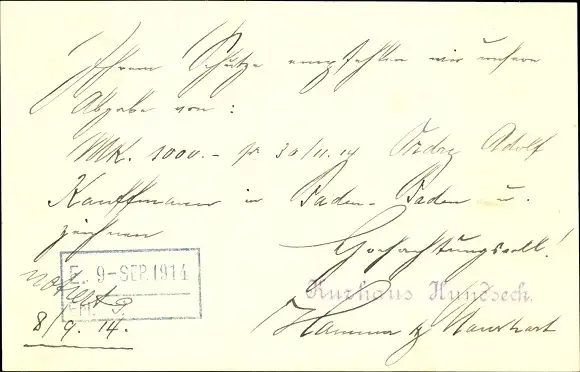 Ihrem Schutze empfehlen wir unsere
Abgabe von:
Mk. 1000.- pr 30/11.14 Ordre Adolf
Kauffmann in Baden-Baden u.
zeichnen
Hochachtungsvoll!
E. 9-SEP. 1914
notiert
8/9. 14.
Kurhaus Hundseck.
Hammer &